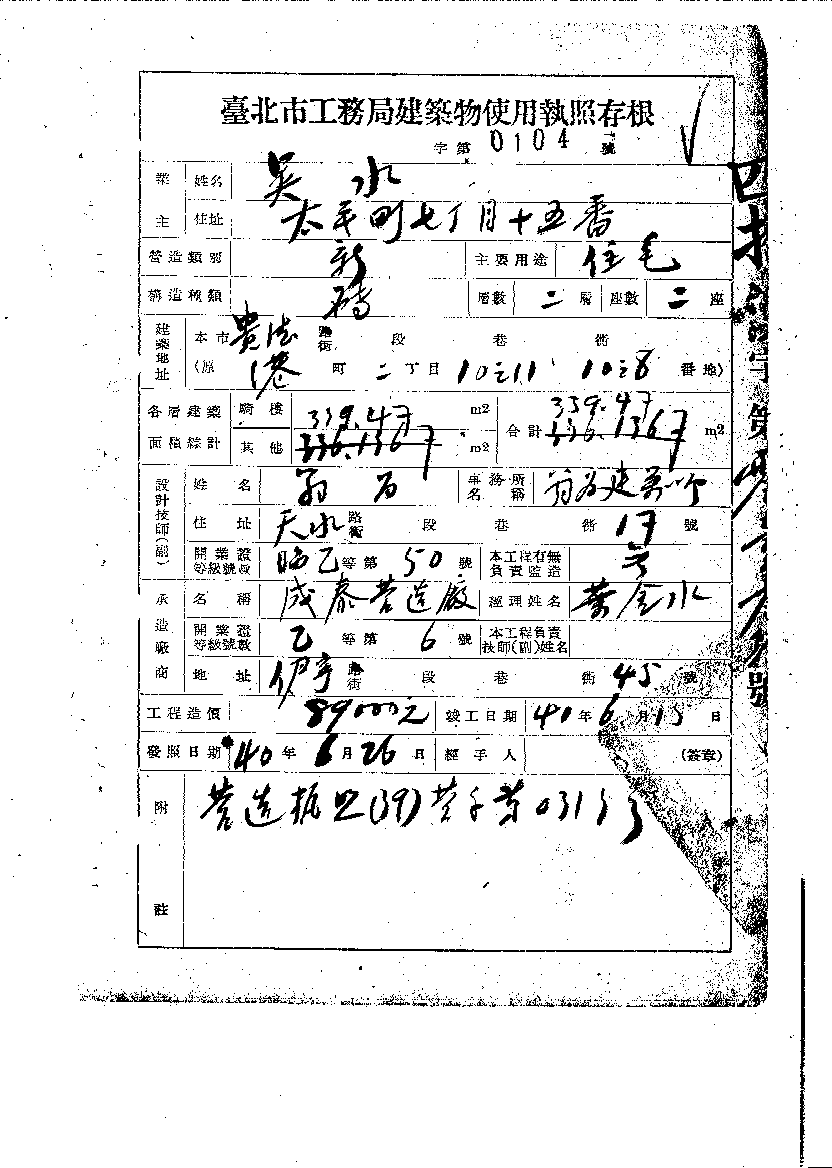 臺北市工務局建築物使用執照存根
字第0104號
業主 姓名 吳水
住址 太平町七丁目十五番
營造類別 新 主要用途 住宅
構造種類 磚 層數 二層 座數 二座
建築地址 本市貴德路街 段 巷 衖
(原 港町二丁目10之11 10之8番地)
各層建築面積綜計 騎樓 339.47 m2 合計 339.47 m2
其他 336.1367 m2 336.1367
設計技師(副) 姓名 事務所名稱
住址 天水路街 段 巷 衖 17號
開業證等級號數 臨乙等第50號 本工程有無負責監造
承造廠商 名稱 成泰营造廠 經理姓名 葉金水
開業證等級號數 乙等第6號 本工程負責技師(副)姓名
地址 伊宁路街 段 巷 衖 45號
工程造價 89000元 竣工日期 40年6月15日
發照日期 40年6月26日 經手人 (簽章)
附註 营造執照(39)